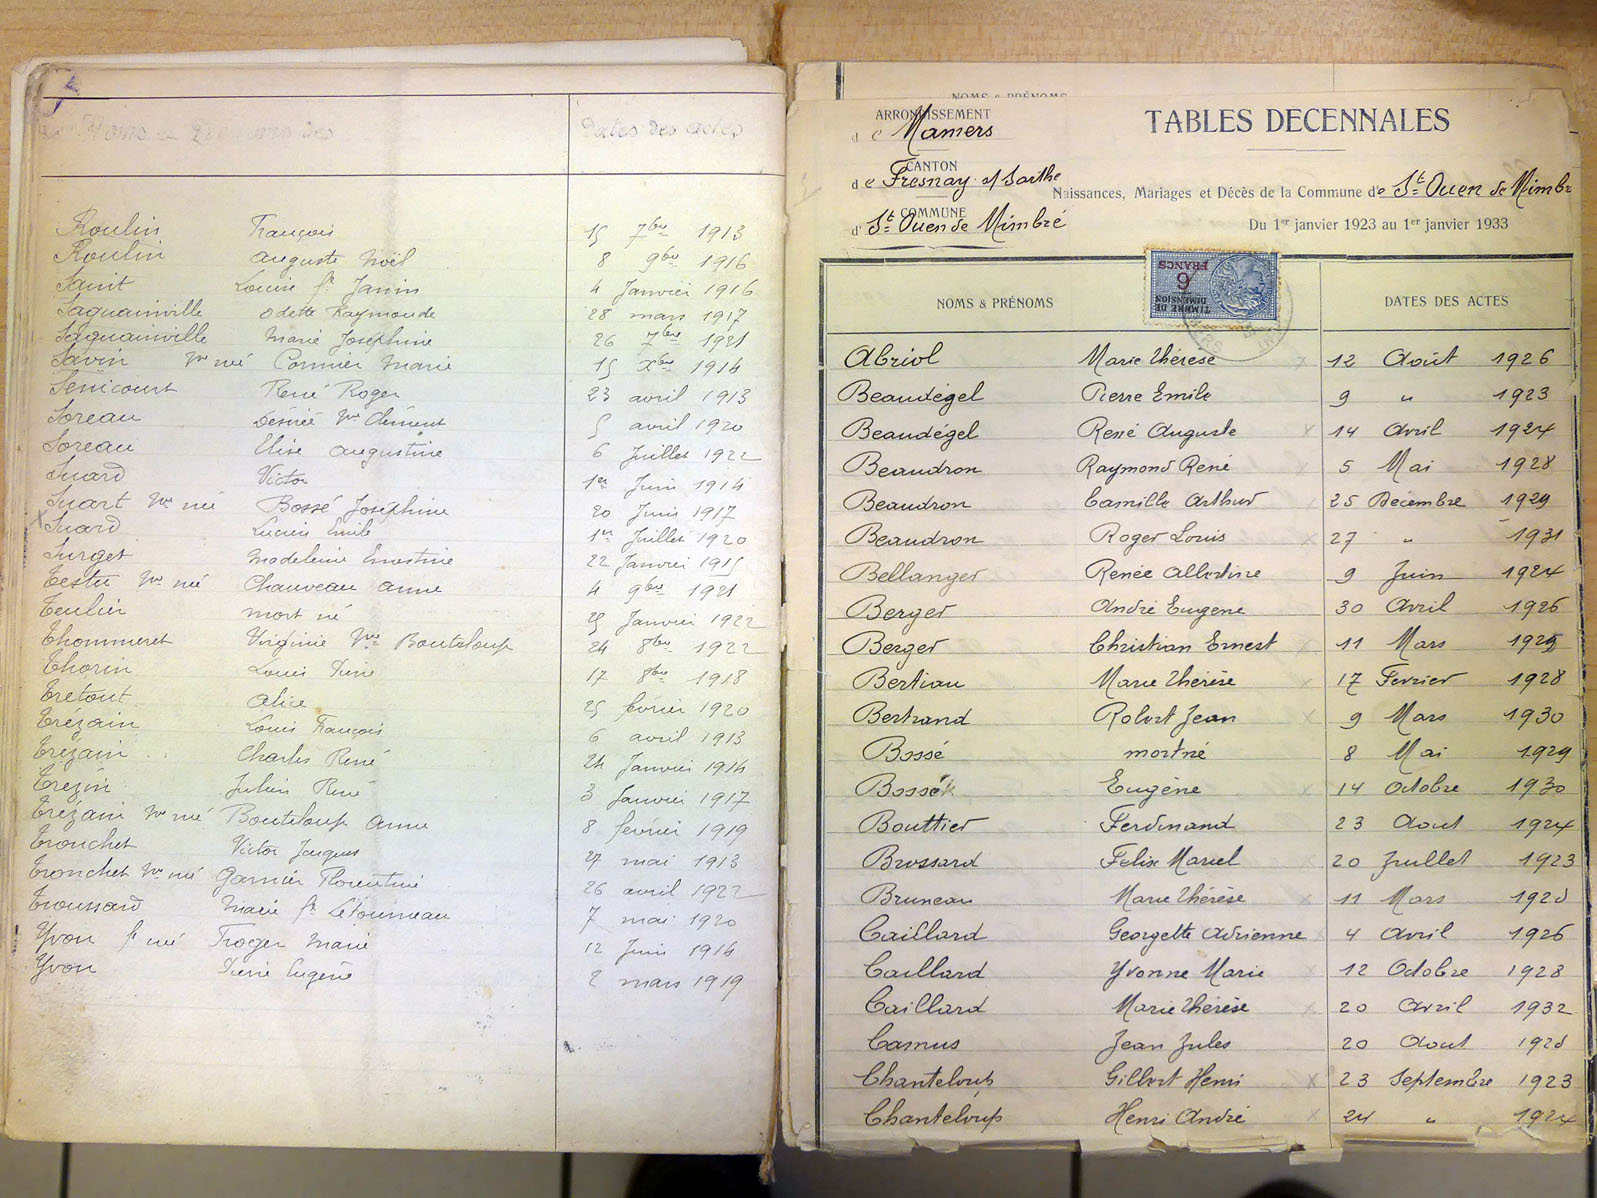 Noms et Prénoms des
Dates des actes
Roulin François 15 7bre 1913
Roulin Auguste Noël 8 9bre 1916
Saint Louise fe Janin 4 Janvier 1916
Saquainville Odette Raymonde 28 mars 1917
Saquainville Marie Joséphine 26 7bre 1921
Savin Vve née Cormier Marie 15 Xbre 1914
Senicourt René Roger 23 avril 1913
Soreau Désirée Vve Clément 5 avril 1920
Soreau Elise Augustine 6 Juillet 1922
Suard Victor 1er Juin 1914
Suart Vve née Bossé Joséphine 20 Juin 1917
Suard Lucien Emile 1er Juillet 1920
Surget Madeleine Ernestine 22 Janvier 1915
Testu Vve née Chauveau Anne 4 9bre 1921
Teulin mort né 25 Janvier 1922
Thommeret Virginie Vve Bouteloup 24 8bre 1922
Thorin Louis 17 8bre 1918
Tretout Alice 25 février 1920
Trézain Louis François 6 avril 1913
Trézain Charles René 24 Janvier 1914
Trezin Julien René 3 Janvier 1917
Trézain Vve née Bouteloup Anne 8 février 1919
Tronchet Victor Jacques 27 mai 1913
Tronchet Vve née Garnier Florentine 26 avril 1922
Troussard Marie fe Létourneau 7 mai 1920
Yvon fe née Troger Marie 12 Juin 1914
Yvon Pierre Eugène 2 mars 1919
NOMS & PRÉNOMS
ARRONDISSEMENT
de Mamers
CANTON
de Fresnay s/ Sarthe
COMMUNE
d' St Ouen de Mimbré
TABLES DÉCENNALES
Naissances, Mariages et Décès de la Commune de St Ouen de Mimbr
Du 1er janvier 1923 au 1er janvier 1933
NOMS & PRÉNOMS
TIMBRE DE
DIMENSION
6
FRANCS
DATES DES ACTES
Abriol Marie Thérèse x 12 Août 1926
Beaudégel Pierre Emile 9 " 1923
Beaudégel René Auguste x 14 Avril 1924
Beaudron Raymond René 5 Mai 1928
Beaudron Camille Arthur x 25 Décembre 1929
Beaudron Roger Louis x 27 " 1931
Bellanger Renée Albertine 9 Juin 1924
Berger André Eugène 30 Avril 1926
Berger Christian Ernest x 11 Mars 1925
Bertiau Marie Thérèse x 17 Fevrier 1928
Bertrand Robert Jean x 9 Mars 1930
Bossé mort né 8 Mai 1929
Bossé Eugène x 14 Octobre 1930
Bouttier Ferdinand 23 Aout 1924
Brossard Felix Marcel x 20 Juillet 1923
Bruneau Marie Thérèse x 11 Mars 1928
Caillard Georgette Adrienne x 4 Avril 1926
Caillard Yvonne Marie x 12 Octobre 1928
Caillard Marie Thérèse x 20 Avril 1932
Camus Jean Jules 20 Aout 1928
Chanteloup Gilbert Henri x 23 Septembre 1923
Chanteloup Henri André x 24 " 1924